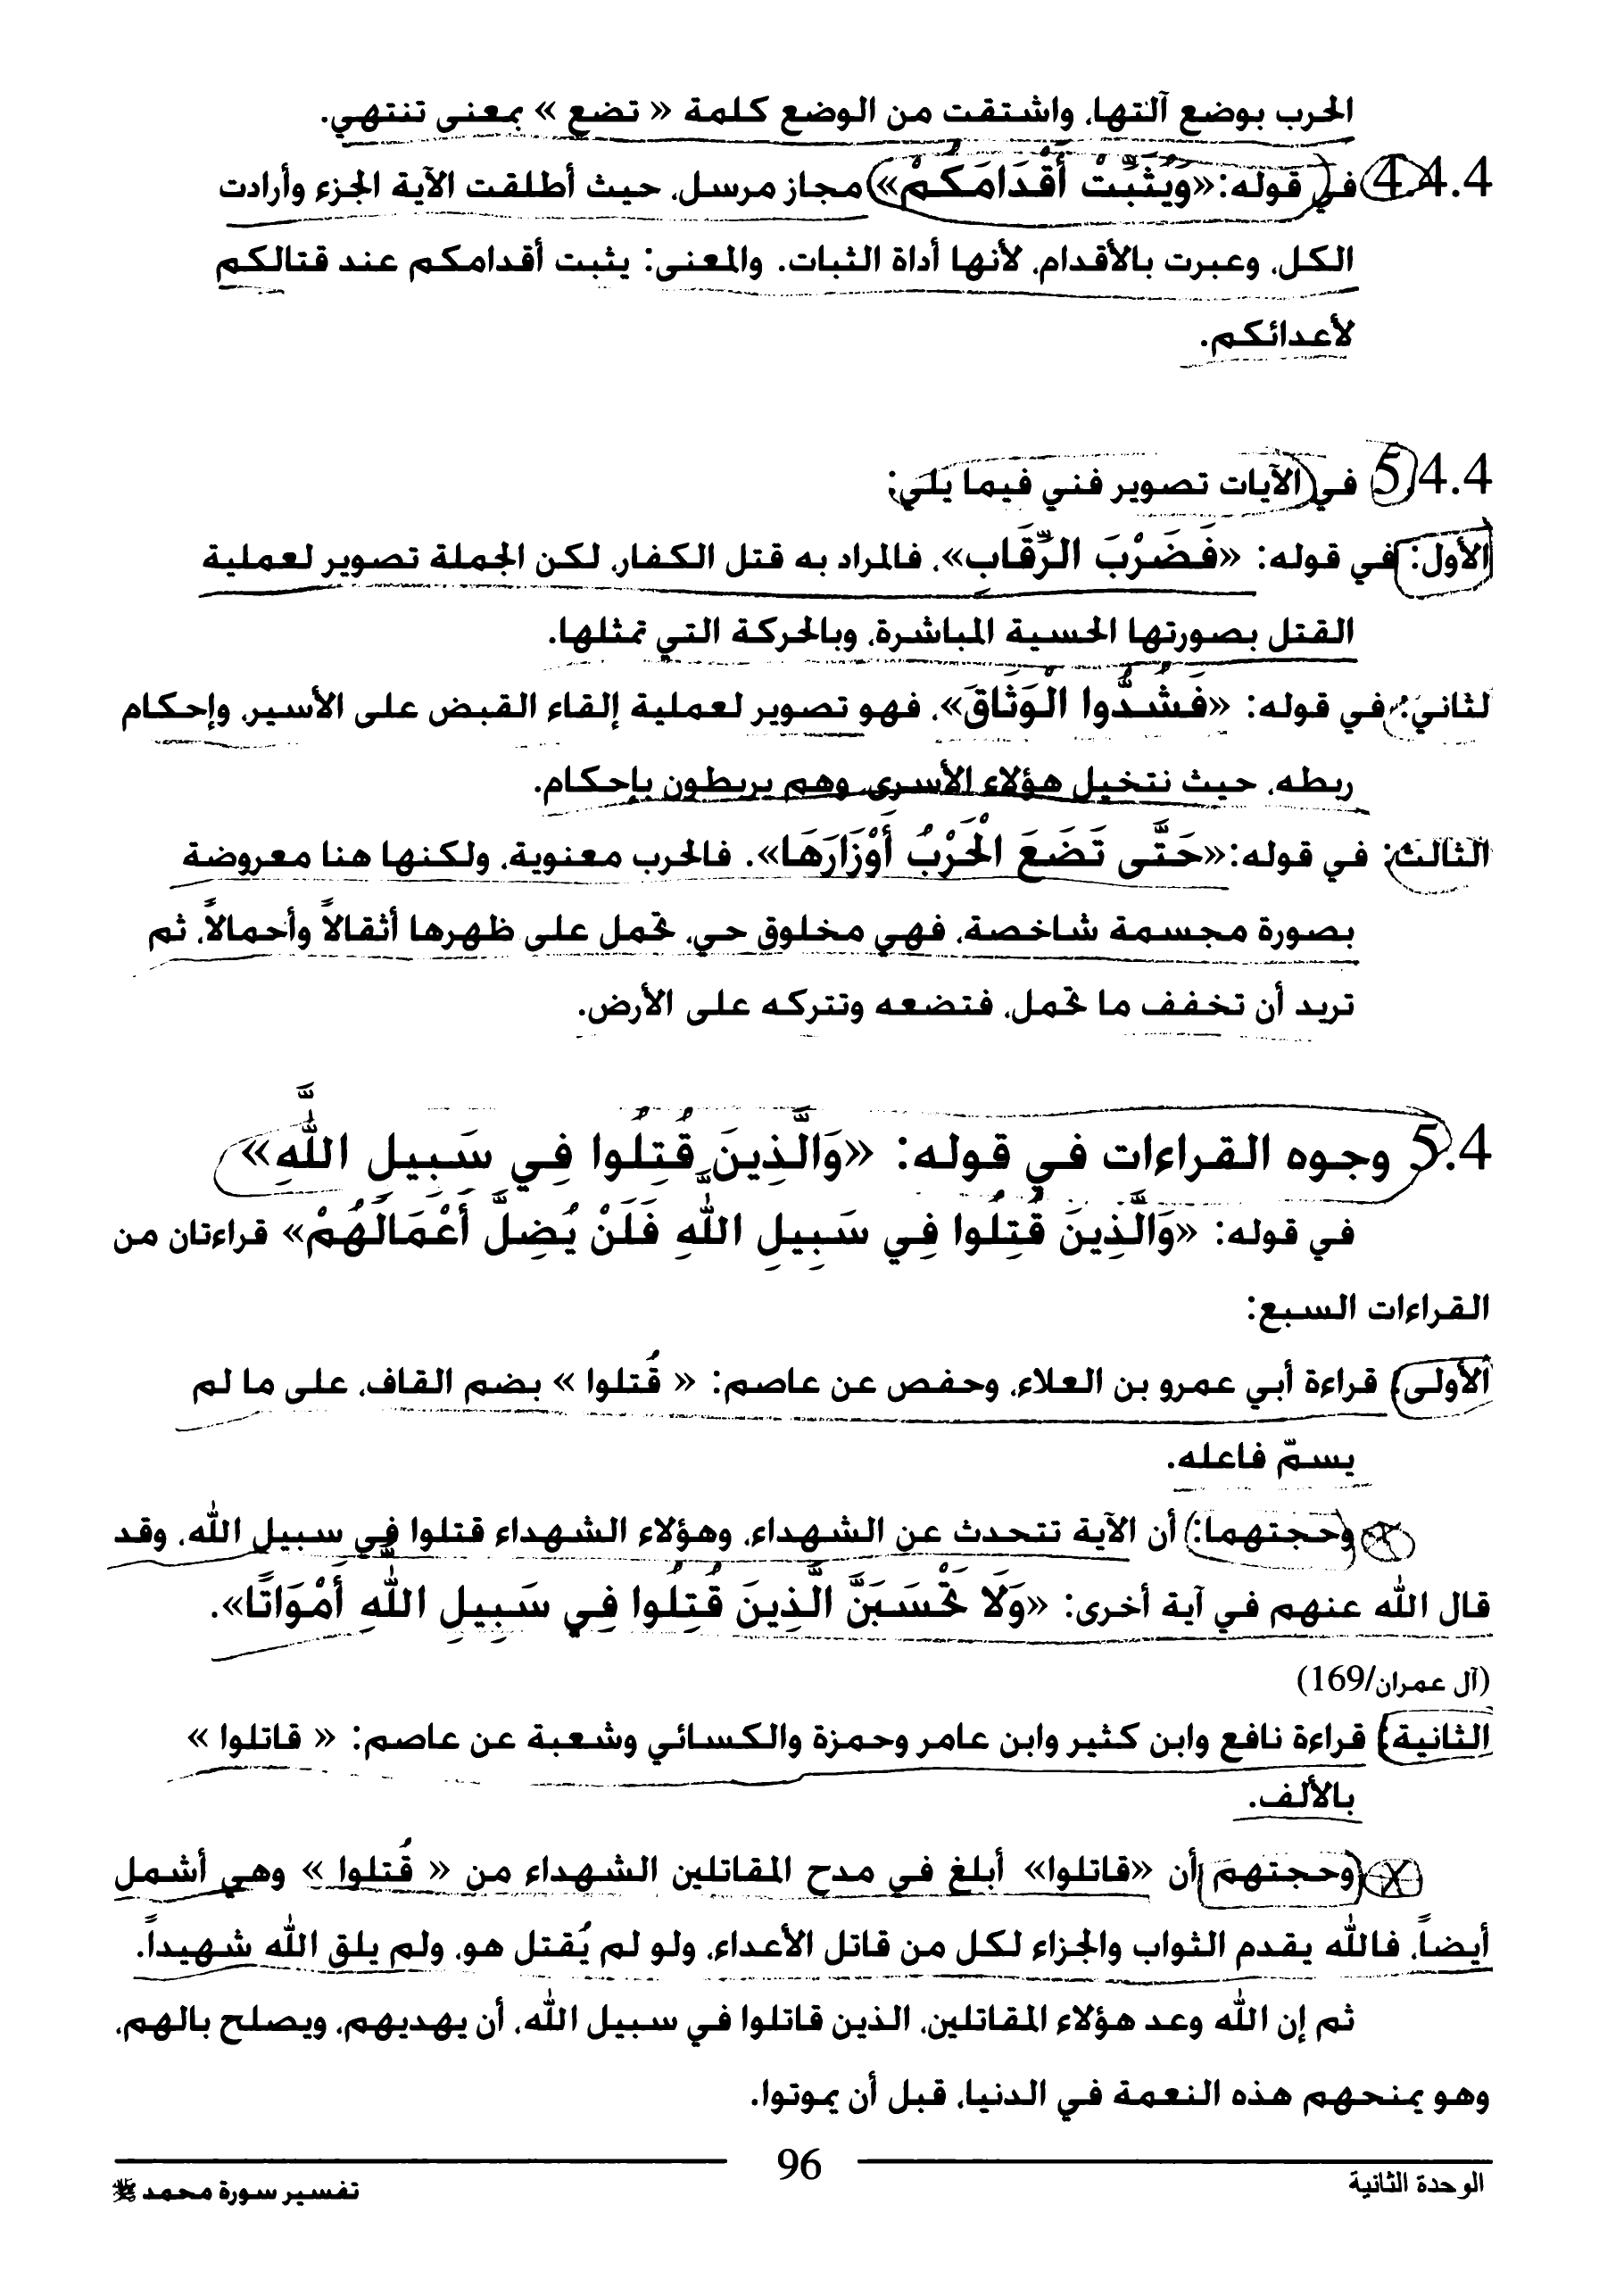 الحرب بوضع آلتها، واشتقت من الوضع كلمة « تضع » بمعنى تنتهي.
4.4.4 في قوله: «وَيُثَبِّتْ أَقْدَامَكُمْ» مجاز مرسل، حيث أطلقت الآية الجزء وأرادت
الكل، وعبرت بالأقدام، لأنها أداة الثبات. والمعنى: يثبت أقدامكم عند قتالكم
لأعدائكم.
5.4.4 في الآيات تصوير فني فيما يلي:
الأول: في قوله: «فَضَرْبَ الرِّقَابِ»، فالمراد به قتل الكفار، لكن الجملة تصوير لعملية
القتل بصورتها الحسية المباشرة، وبالحركة التي تمثلها.
لثاني: في قوله: «فَشُدُّوا الْوَثَاقَ»، فهو تصوير لعملية إلقاء القبض على الأسير، وإحكام
ربطه، حيث نتخيل هؤلاء الأسرى وهم يربطون بإحكام.
الثالث: في قوله: «حَتَّى تَضَعَ الْحَرْبُ أَوْزَارَهَا». فالحرب معنوية، ولكنها هنا معروضة
بصورة مجسمة شاخصة، فهي مخلوق حي، تحمل على ظهرها أثقالاً وأحمالاً، ثم
تريد أن تخفف ما تحمل، فتضعه وتتركه على الأرض.
5.4 وجوه القراءات في قوله: «وَالَّذِينَ قُتِلُوا فِي سَبِيلِ اللَّهِ»
في قوله: «وَالَّذِينَ قُتِلُوا فِي سَبِيلِ اللَّهِ فَلَنْ يُضِلَّ أَعْمَالَهُمْ» قراءتان من
القراءات السبع:
الأولى: قراءة أبي عمرو بن العلاء، وحفص عن عاصم: « قُتلوا » بضم القاف، على ما لم
يسمّ فاعله.
وحجتهما: أن الآية تتحدث عن الشهداء، وهؤلاء الشهداء قتلوا في سبيل الله، وقد
قال الله عنهم في آية أخرى: «وَلَا تَحْسَبَنَّ الَّذِينَ قُتِلُوا فِي سَبِيلِ اللَّهِ أَمْوَاتًا».
(آل عمران/169)
الثانية: قراءة نافع وابن كثير وابن عامر وحمزة والكسائي وشعبة عن عاصم: « قاتلوا »
بالألف.
وحجتهم أن «قاتلوا» أبلغ في مدح المقاتلين الشهداء من « قُتلوا » وهي أشمل
أيضاً، فالله يقدم الثواب والجزاء لكل من قاتل الأعداء، ولو لم يُقتل هو، ولم يلق الله شهيداً.
ثم إن الله وعد هؤلاء المقاتلين، الذين قاتلوا في سبيل الله، أن يهديهم، ويصلح بالهم،
وهو يمنحهم هذه النعمة في الدنيا، قبل أن يموتوا.
الوحدة الثانية 96 تفسير سورة محمد ﷺ